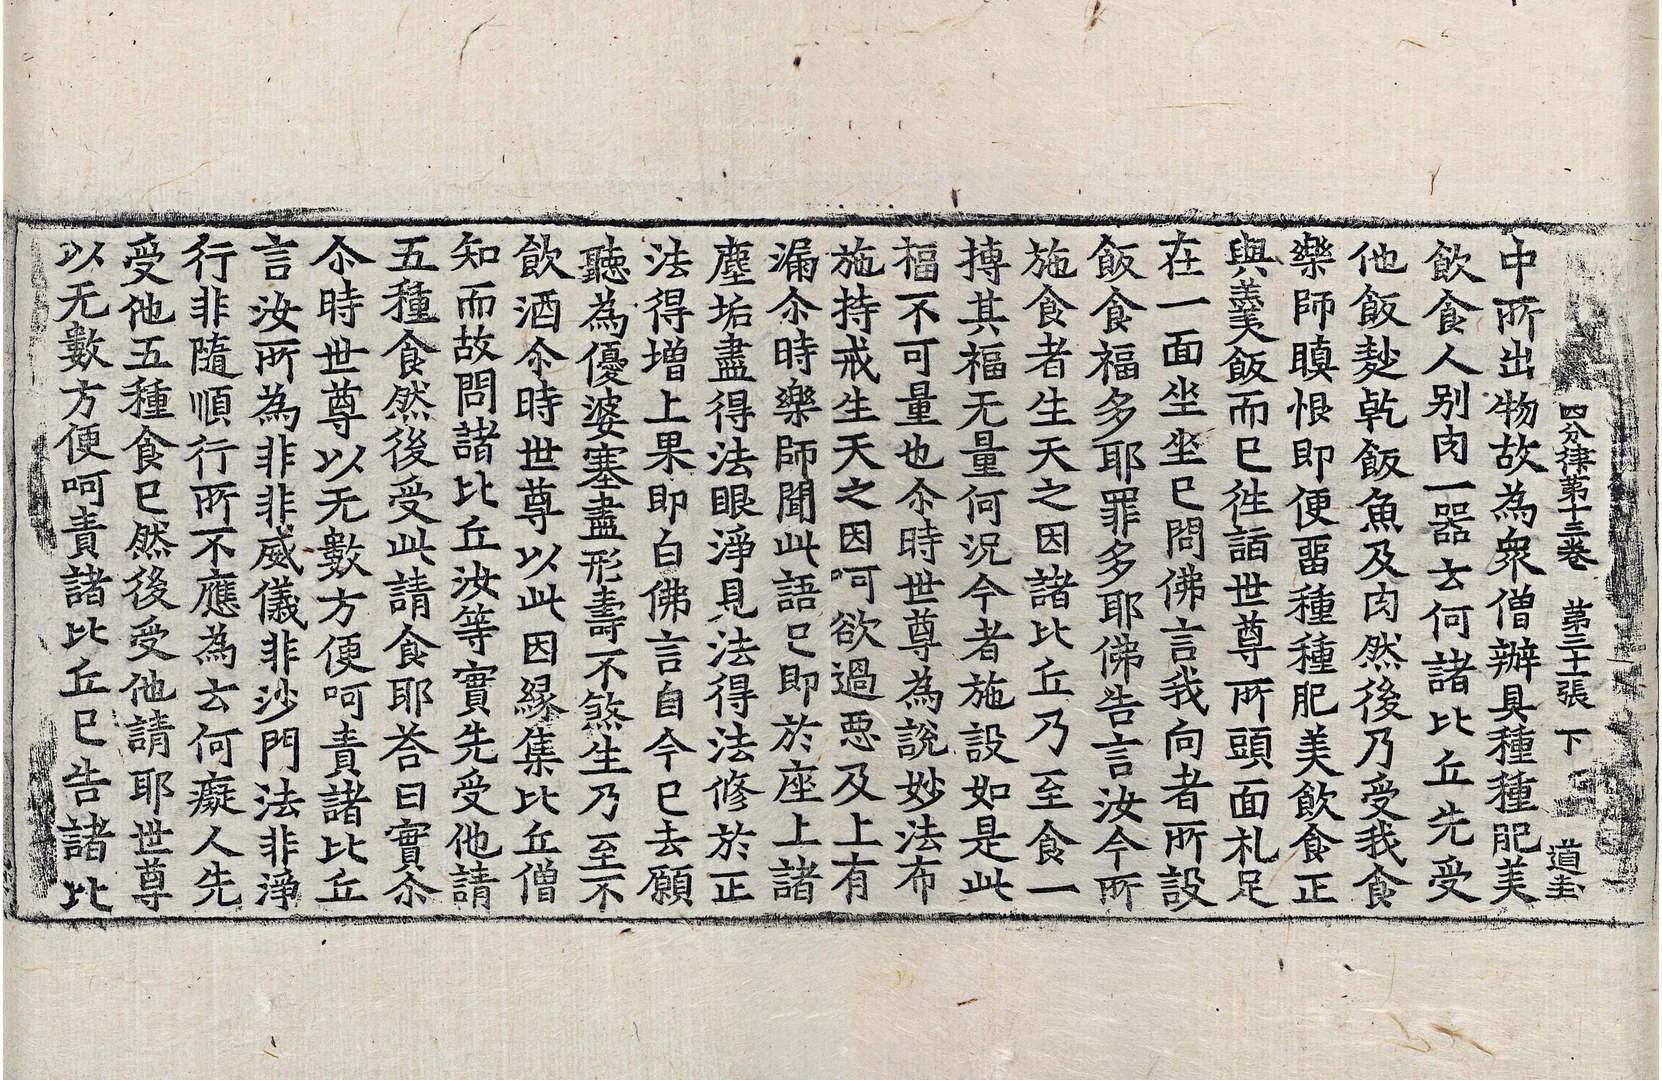 四分律第十三卷　第三十一張　下　道圭
中所出物故為衆僧辦具種種肥美
飲食人別肉一器云何諸比丘先受
他飯麨乾飯魚及肉然後乃受我食
樂師瞋恨即便畱種種肥美飲食正
與羹飯而已徃詣世尊所頭面礼足
在一面坐坐已問佛言我向者所設
飯食福多耶罪多耶佛告言汝今所
施食者生天之因諸比丘乃至食一
摶其福无量何況今者施設如是此
福不可量也尒時世尊為說妙法布
施持戒生天之因呵欲過惡及上有
漏尒時樂師聞此語已即於座上諸
塵垢盡得法眼淨見法得法修於正
法得增上果即白佛言自今已去願
聽為優婆塞盡形壽不煞生乃至不
飲酒尒時世尊以此因緣集比丘僧
知而故問諸比丘汝等實先受他請
五種食然後受此請食耶荅曰實尒
尒時世尊以无數方便呵責諸比丘
言汝所為非非威儀非沙門法非淨
行非隨順行所不應為云何癡人先
受他五種食已然後受他請耶世尊
以无數方便呵責諸比丘已告諸比